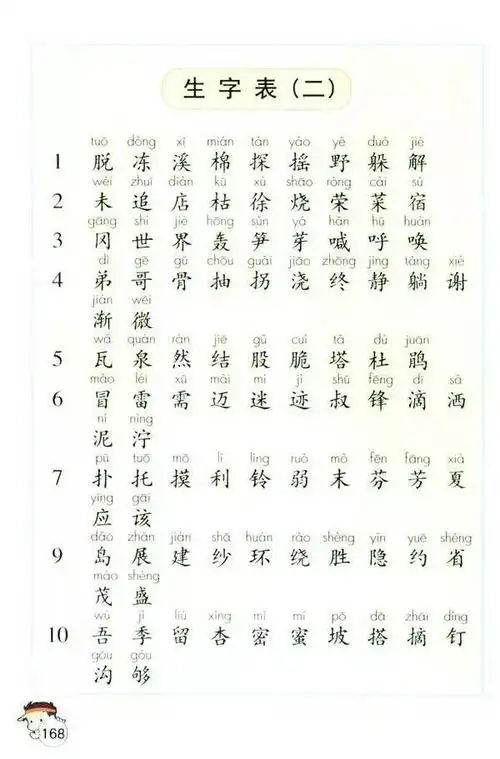 生字表(二)
tuō dòng xī mián tàn yáo yě duǒ jiě
1 脱 冻 溪 棉 探 摇 野 躲 解
wèi zhuī diàn kū xú shāo róng cài sù
2 未 追 店 枯 徐 烧 荣 菜 宿
gāng shì jiè hōng sǔn yá hǎn hū huàn
3 冈 世 界 轰 笋 芽 喊 呼 唤
dì gē gǔ chōu guǎi jiāo zhōng jìng tǎng xiè
4 弟 哥 骨 抽 拐 浇 终 静 躺 谢
jiàn wēi
渐 微
wǎ quán rán jié gǔ cuì tǎ dù juān
5 瓦 泉 然 结 股 脆 塔 杜 鹃
mào léi xū mài mí jì shū fēng dī sǎ
6 冒 雷 需 迈 迷 迹 叔 锋 滴 洒
ní nìng
泥 泞
pū tuō mō lì líng ruò mò fēn fāng xià
7 扑 托 摸 利 铃 弱 末 芬 芳 夏
yīng gāi
应 该
dǎo zhǎn jiàn shā huán rào shèng yǐn yuē shěng
9 岛 展 建 纱 环 绕 胜 隐 约 省
mào shèng
茂 盛
wú jì liú xìng mì mì pō dā zhāi dīng
10 吾 季 留 杏 密 蜜 坡 搭 摘 钉
gōu gòu
沟 够
168